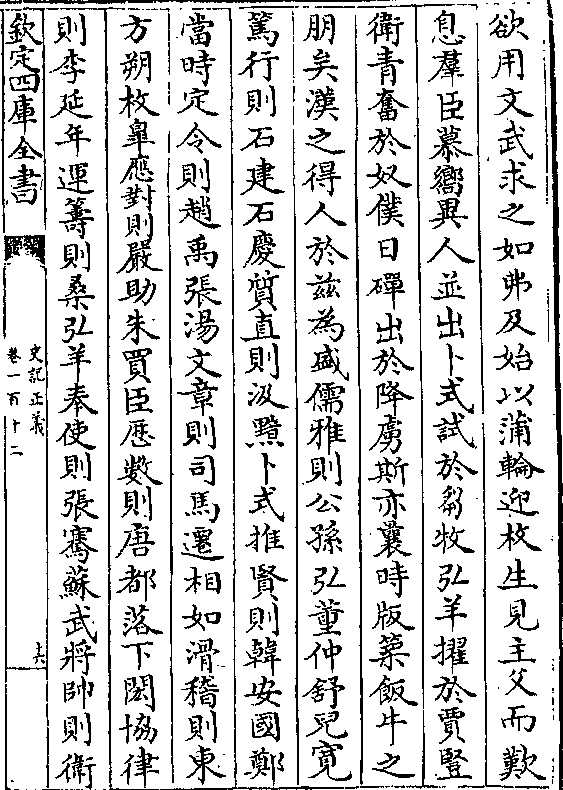 欲用文武求之如弗及始以蒲輪迎枚生見主父而歎
息羣臣慕嚮異人並出卜式試於芻牧弘羊擢於賈豎
衛青奮於奴僕日磾出於降虜斯亦曩時版築飯牛之
朋矣漢之得人於兹為盛儒雅則公孫弘董仲舒兒寛
篤行則石建石慶質直則汲黯卜式推賢則韓安國鄭
當時定令則趙禹張湯文章則司馬遷相如滑稽則東
方朔枚臯應對則嚴助朱買臣厯數則唐都落下閎協律
則李延年運籌則桑弘羊奉使則張騫蘇武將帥則衛
欽定四庫全書
史記正義
卷一百十二
十六